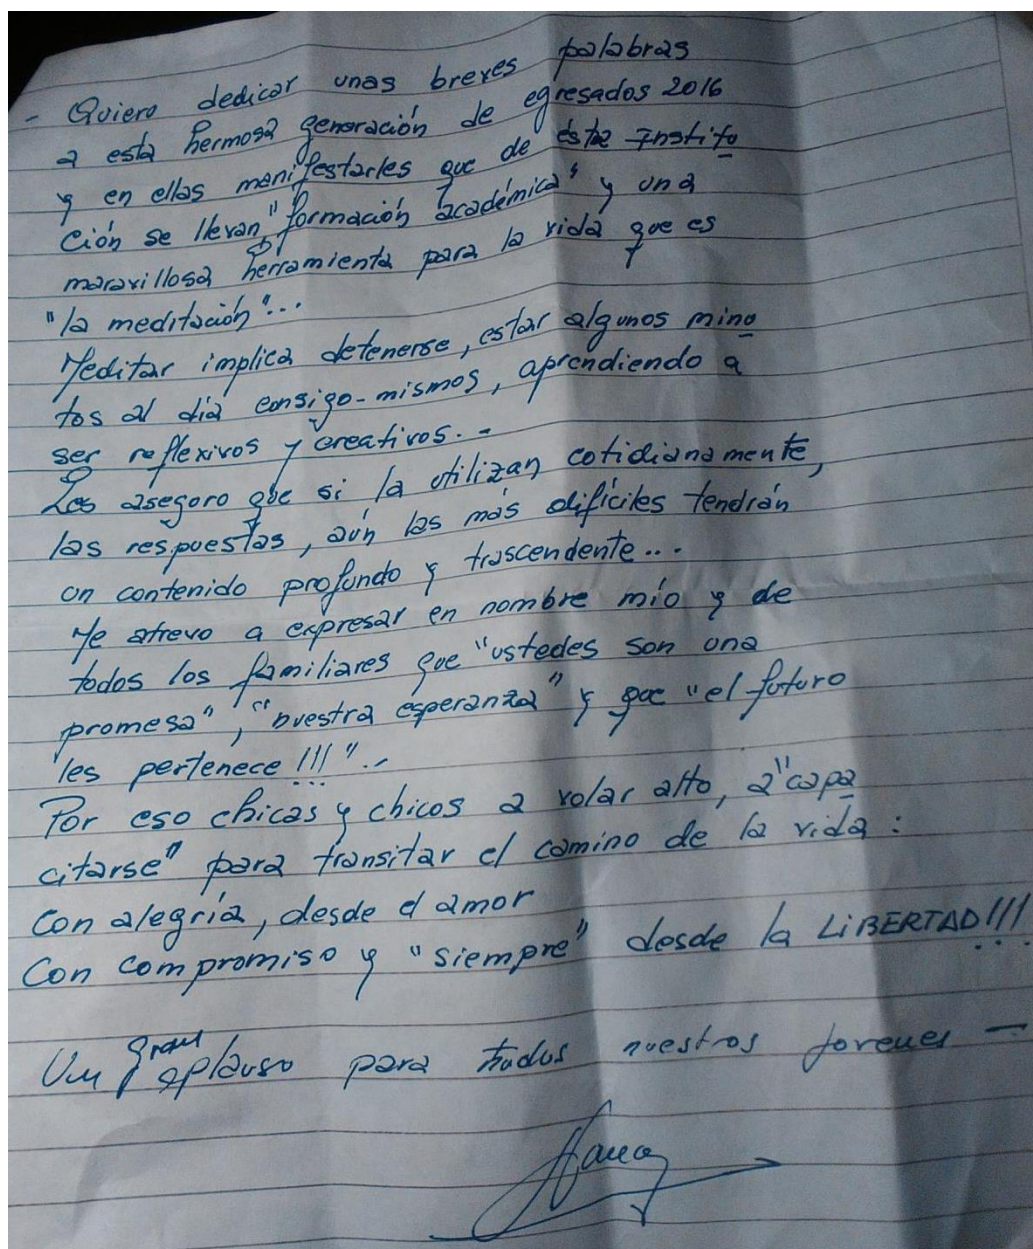 - Quiero dedicar unas breves palabras
a esta hermosa generación de egresados 2016
y en ellas manifestarles que de ésta Institu
ción se llevan "formación académica" y una
maravillosa herramienta para la vida que es
"la meditación"...
Meditar implica detenerse, estar algunos minu
tos al día consigo-mismos, aprendiendo a
ser reflexivos y creativos.-
Les aseguro que si la utilizan cotidianamente,
las respuestas, aún las más difíciles tendrán
un contenido profundo y trascendente...
Me atrevo a expresar en nombre mío y de
todos los familiares que "ustedes son una
promesa", "nuestra esperanza" y que "el futuro
les pertenece!!!".-
Por eso chicas y chicos a volar alto, a "capa
citarse" para transitar el camino de la vida:
Con alegría, desde el amor
Con compromiso y "siempre" desde la LIBERTAD!!!
Un gran aplauso para todos nuestros jovenes -